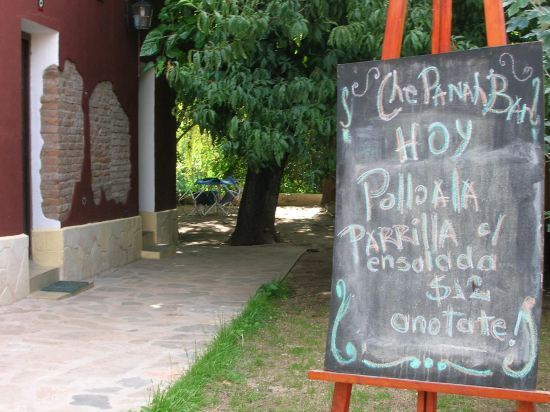 Che Panah Bar
HOY
Pollo a la
PARRILLA c/
ensalada
$12
anotate!